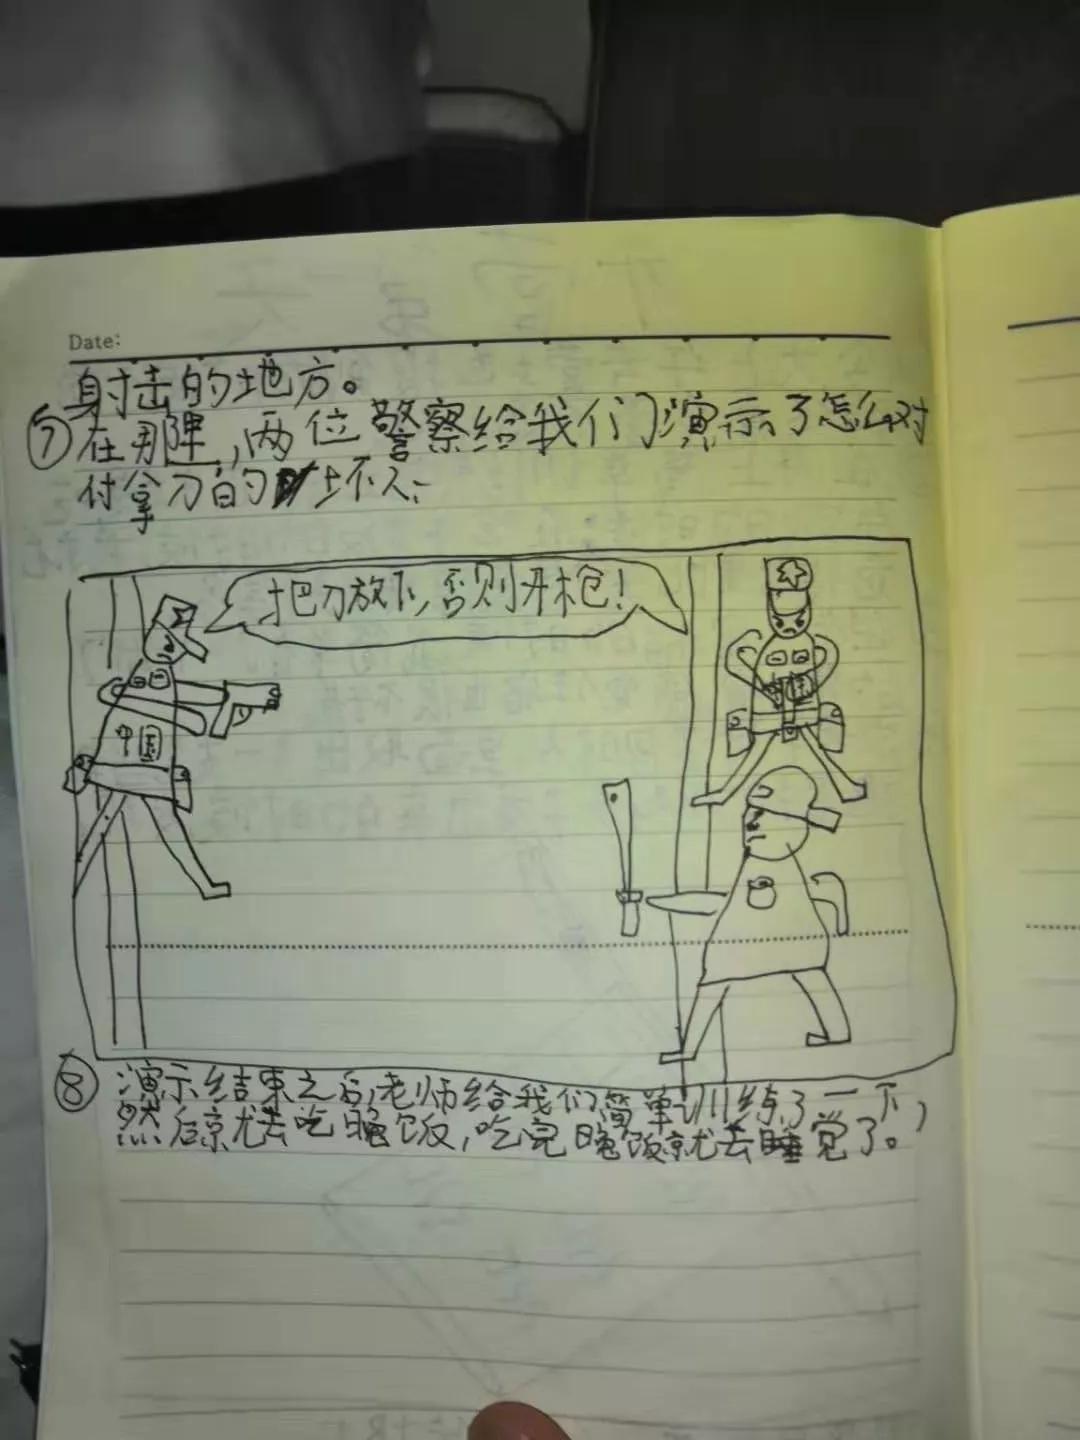 Date:
射击的地方。
⑦在那里,两位警察给我们演示了怎么对
付拿刀的坏人:
把刀放下,否则开枪!
中国
⑧演示结束之后,老师给我们简单训练了一下,
然后就去吃晚饭,吃完晚饭就去睡觉了。